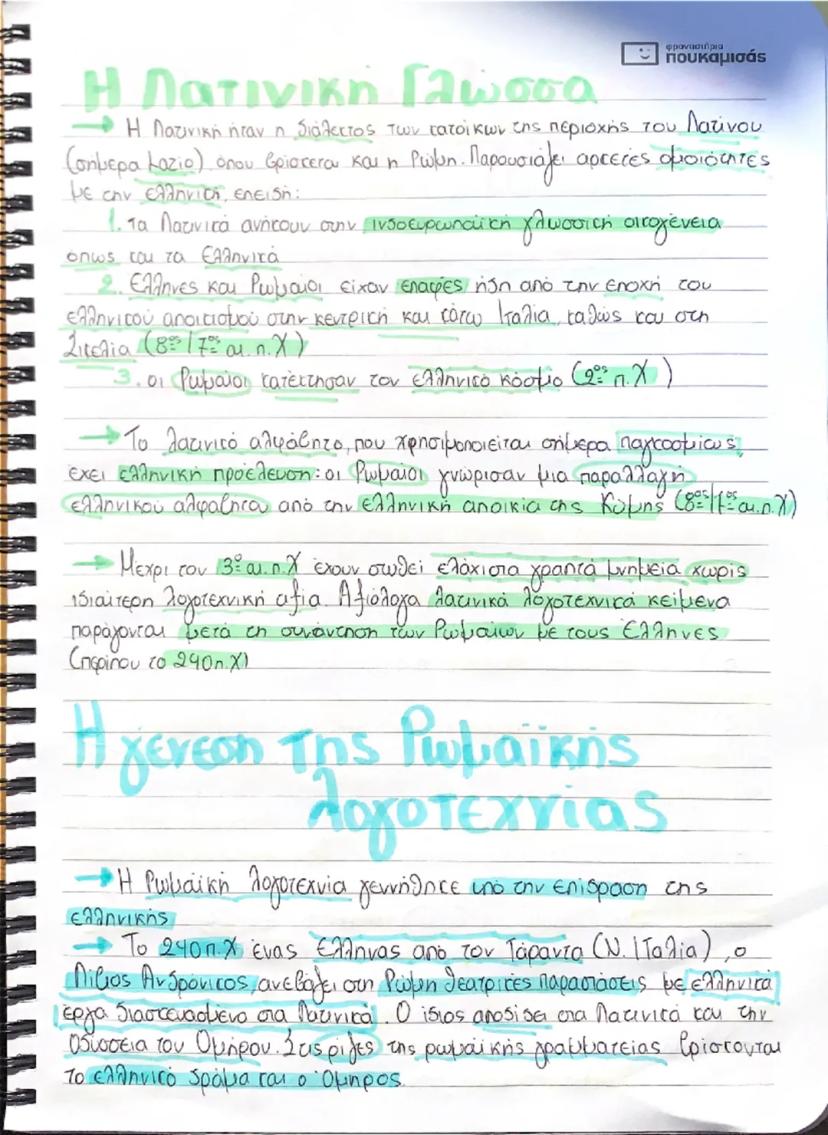 φροντιστήρια
πουκαμισάς
Η Λατινική Γλώσσα
→ Η Λατινική ήταν η διάλεκτος των κατοίκων της περιοχής του Λατίου
(σήμερα Lazio) όπου βρίσκεται και η Ρώμη. Παρουσιάζει αρκετές ομοιότητες
με την ελληνική, επειδή:
1. Τα Λατινικά ανήκουν στην ινδοευρωπαϊκή γλωσσική οικογένεια
όπως και τα Ελληνικά
2. Έλληνες και Ρωμαίοι είχαν επαφές ήδη από την εποχή του
ελληνικού αποικισμού στην κεντρική και κάτω Ιταλία, καθώς και στη
Σικελία (8ος/7ος αι. π.Χ)
3. οι Ρωμαίοι κατέκτησαν τον ελληνικό κόσμο (2ος π.Χ)
→ Το λατινικό αλφάβητο, που χρησιμοποιείται σήμερα παγκοσμίως,
έχει ελληνική προέλευση: οι Ρωμαίοι γνώρισαν μια παραλλαγή
ελληνικού αλφαβήτου από την ελληνική αποικία της Κύμης (8ος/7ος αι. π.Χ)
→ Μέχρι τον 3ο αι. π.Χ έχουν σωθεί ελάχιστα γραπτά μνημεία χωρίς
ιδιαίτερη λογοτεχνική αξία. Αξιόλογα λατινικά λογοτεχνικά κείμενα
παράγονται μετά τη συνάντηση των Ρωμαίων με τους Έλληνες
(περίπου το 240 π.Χ)
Η γένεση της Ρωμαϊκής
λογοτεχνίας
→ Η Ρωμαϊκή λογοτεχνία γεννήθηκε υπό την επίδραση της
ελληνικής
→ Το 240 π.Χ ένας Έλληνας από τον Τάραντα (Ν. Ιταλία), ο
Λίβιος Ανδρόνικος, ανεβάζει στη Ρώμη θεατρικές παραστάσεις με ελληνικά
έργα διασκευασμένα στα Λατινικά. Ο ίδιος αποδίδει στα Λατινικά και την
Οδύσσεια του Ομήρου. Στις ρίζες της ρωμαϊκής γραμματείας βρίσκονται
το ελληνικό δράμα και ο Όμηρος.